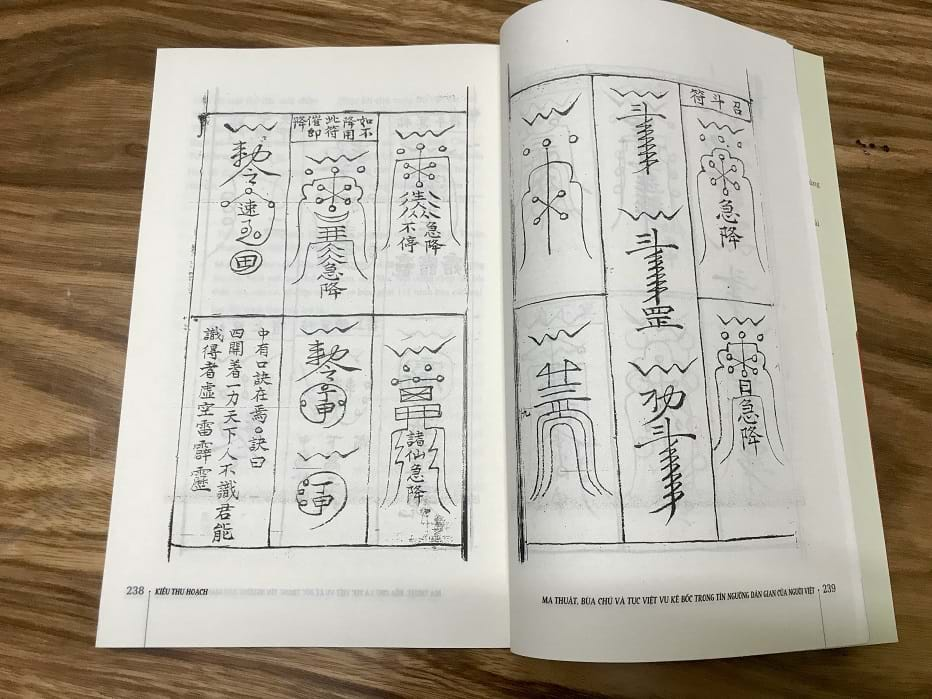 急降
不停
如不降用此符催即降
急降
勅令
速
田
諸仙急降
勅令
申
中有口訣在焉。訣曰
四開着一力天下人不識君能
識得者虛空雷霹靂
238 · KIỀU THU HOẠCH
召斗符
急降
日急降
斗
斗罡
斗
MA THUẬT, BÙA CHÚ VÀ TỤC VIỆT VU KÊ BỐC TRONG TÍN NGƯỠNG DÂN GIAN CỦA NGƯỜI VIỆT · 239